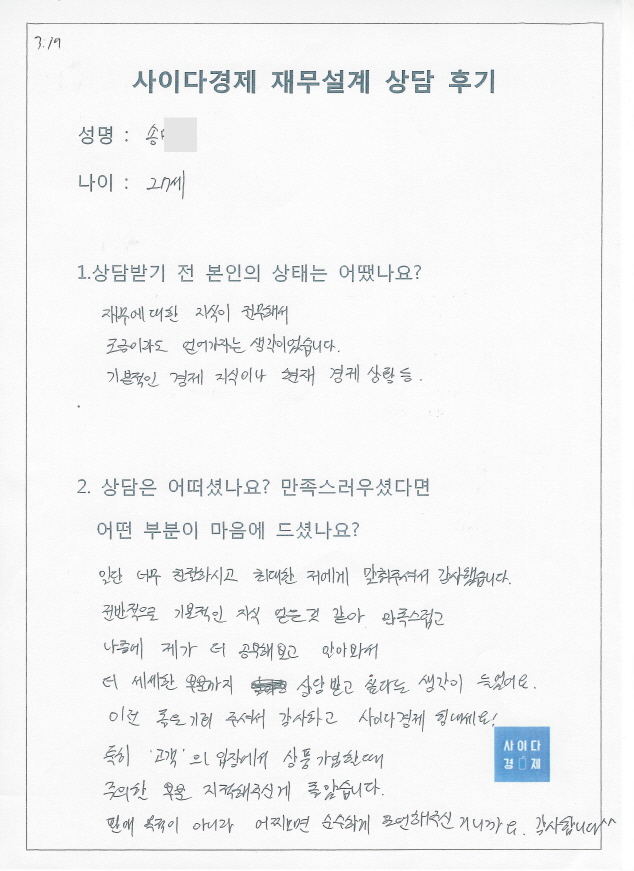 3.19
사이다경제 재무설계 상담 후기
성명 : 송
나이 : 27세
1.상담받기 전 본인의 상태는 어땠나요?
재무에 대한 지식이 전무해서
조금이라도 얻어가자는 생각이었습니다.
기본적인 경제 지식이나 현재 경제 상황 등.
2. 상담은 어떠셨나요? 만족스러우셨다면
어떤 부분이 마음에 드셨나요?
일단 너무 친절하시고 최대한 저에게 맞춰주셔서 감사했습니다.
전반적으로 기본적인 지식 얻는 것 같아 만족스럽고
나중에 제가 더 공부해보고 알아와서
더 세세한 부분까지 상담받고 싶다는 생각이 들었어요.
이런 좋은 기회 주셔서 감사하고 사이다경제 힘내세요!
특히 '고객'의 입장에서 상품 가입할 때
주의할 부분 지적해주신게 좋았습니다.
판매 목적이 아니라 어찌보면 순수하게 조언해주신 거니까요. 감사합니다^^
사이다
경제